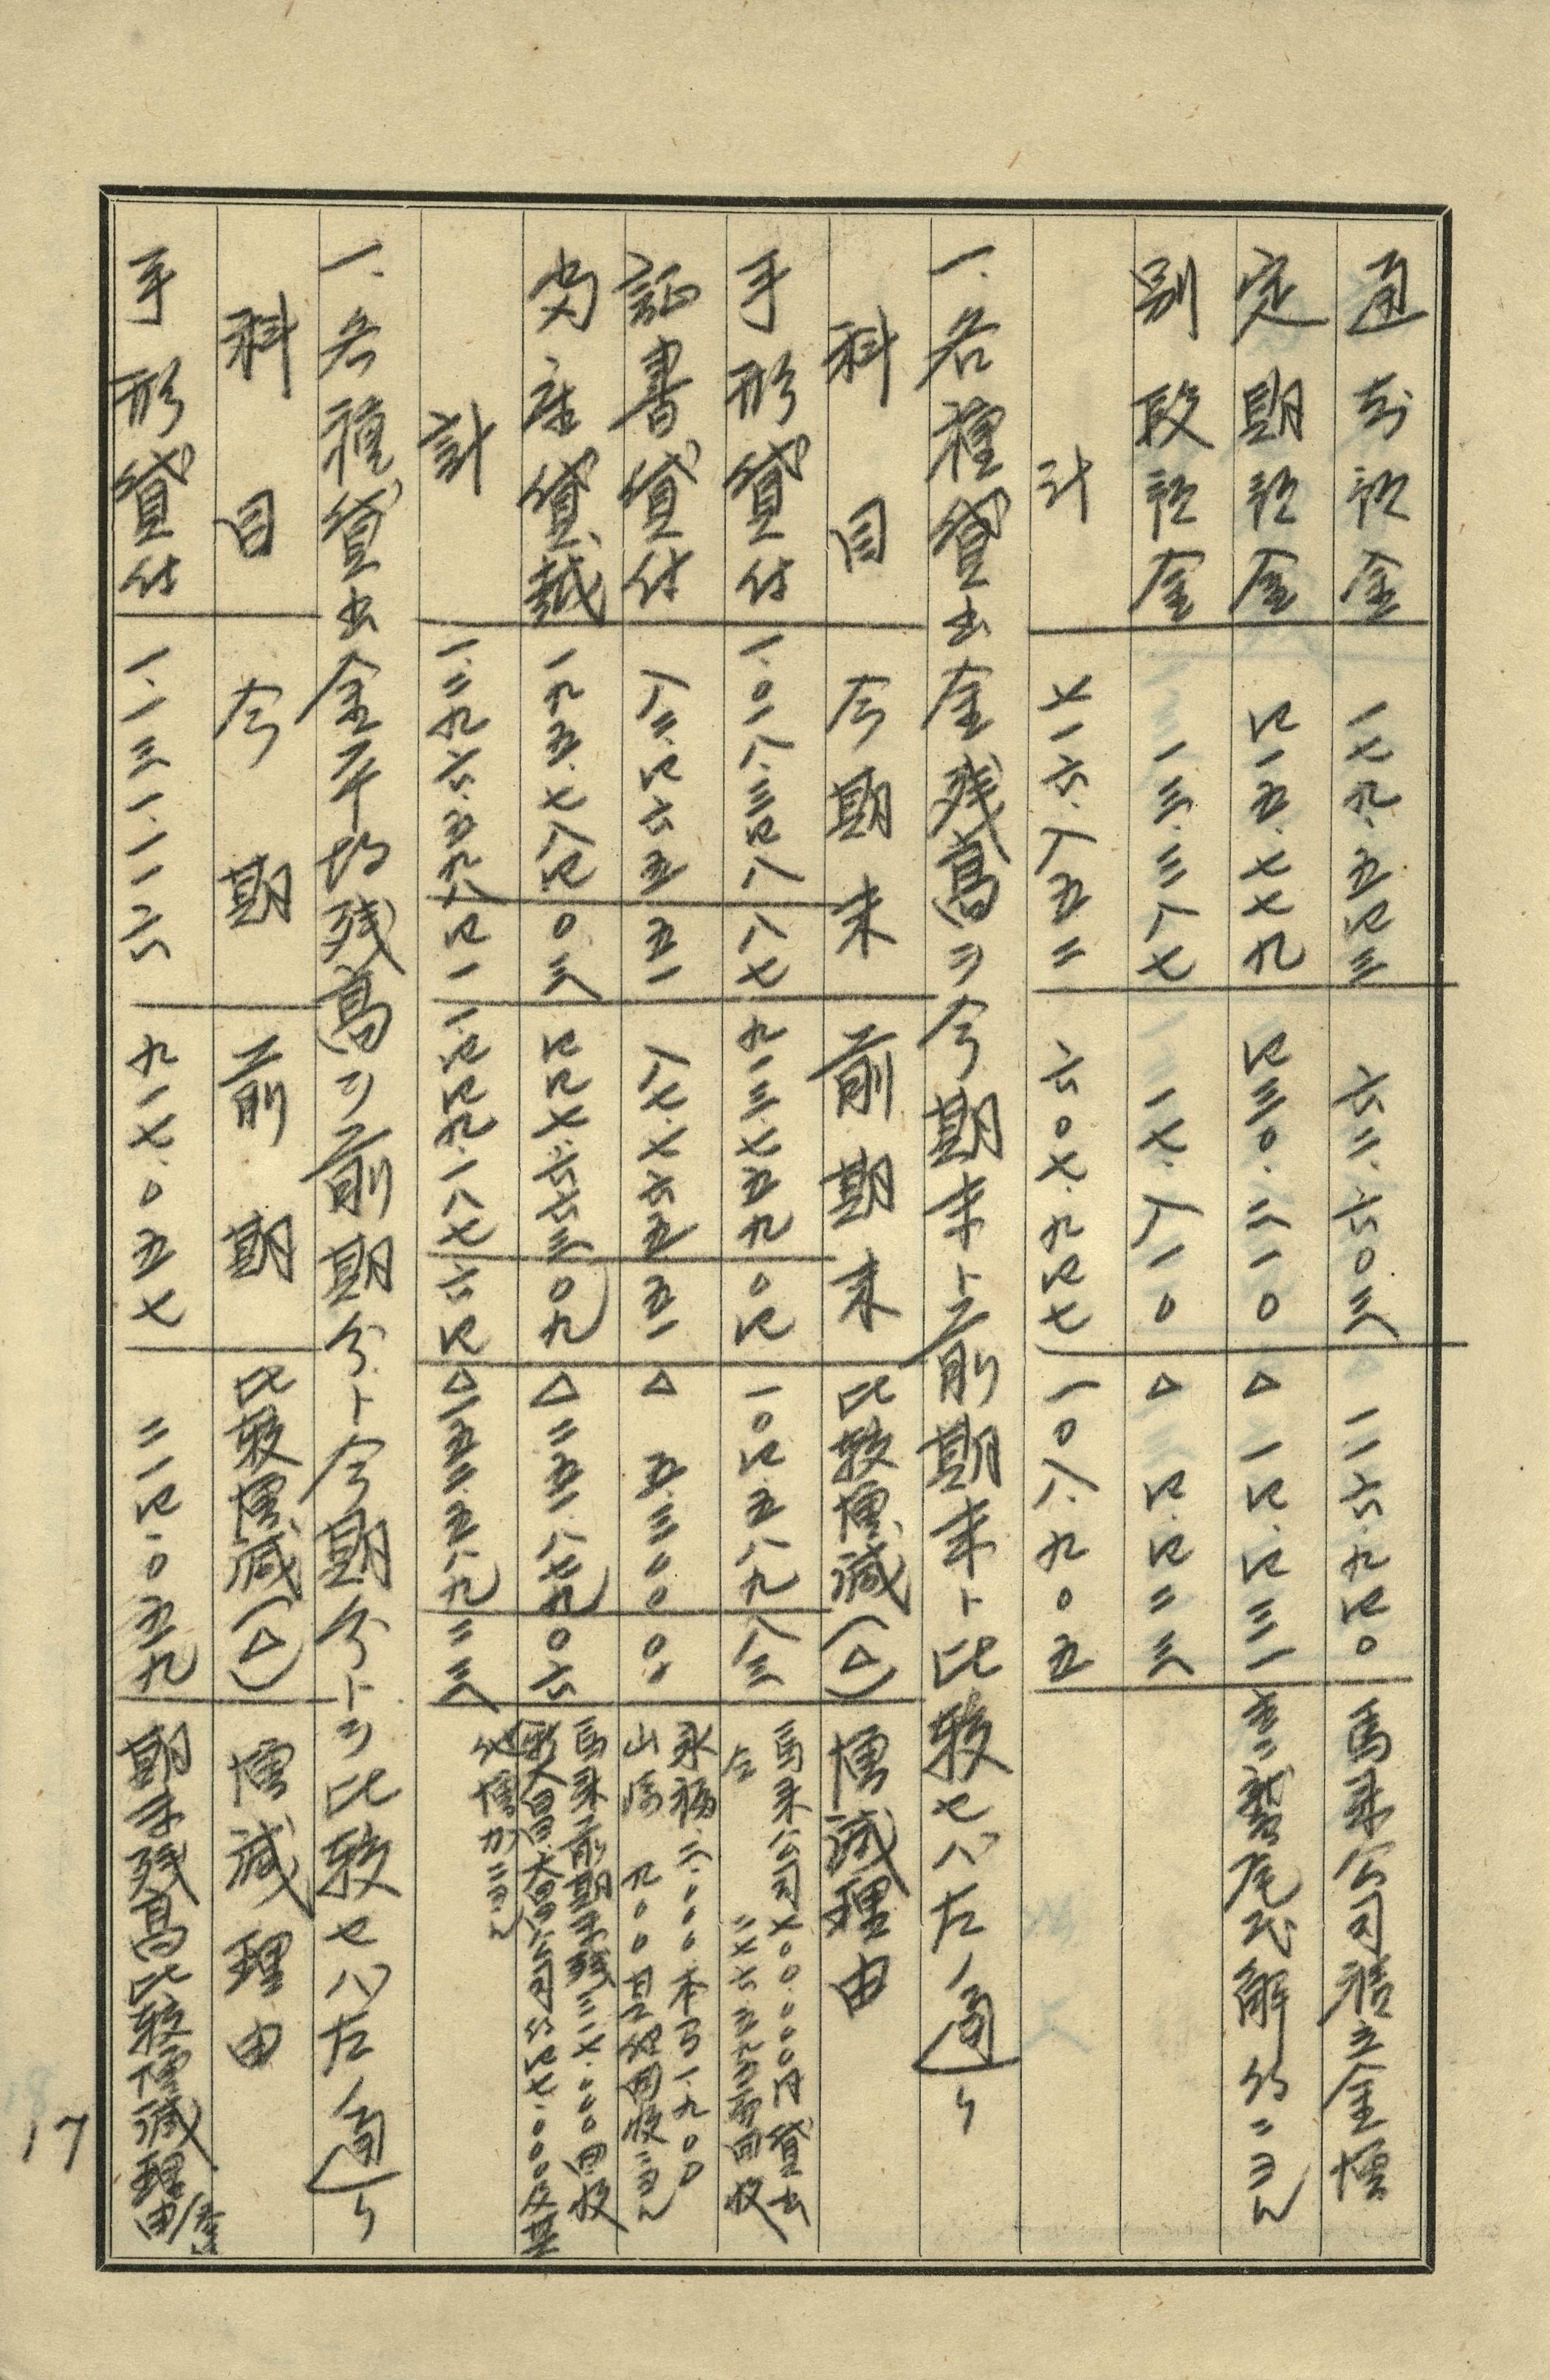 通知預金 一七九.五四三 六二.六〇三 一一六.九四〇 馬来公司積立金増
定期預金 四一五.七七九 四三〇.二一〇 △一四.四三一 主ニ鷲尾氏解約ニヨル
別段預金 一三.三八七 一七.八一〇 △四.四二三
計 七一六.八五二 六〇七.九四七 一〇八.九〇五
一.各種貸出金残高ヲ今期末ト前期末ト比較セバ左ノ通リ
科目 今期末 前期末 比較増減(△) 増減理由
手形貸付 一.〇一八.三四八 八七 九一三.七五九 〇四 一〇四.五八九 八三 馬来公司七〇〇.〇〇〇円貸出
仝 二七六.
証書貸付 八二.四六五 五一 八七.七六五 五一 △五.三〇〇 〇〇 永福二.〇〇〇本司一.九〇〇
山崎 九〇〇 回収ニヨル
当座貸越 一九五.七八四 〇三 四四七.六六三 〇九 △二五一.八七九 〇六 馬来前期末残三一七.〇〇〇回收
大昌公司ヘ約四七.〇〇〇及其
計 一.二九六.五九八 四一 一.四四九.一八七 六四 △一五二.五八九 二三 他増加ニヨル
一.各種貸出金平均残高ヲ前期分ト今期分トヲ比較セバ左ノ通リ
科目 今期 前期 比較増減(△) 増減理由
手形貸付 一.一三一.一一六 九一七.〇五七 二一四.〇五九 期末残高比較増減理由参
17